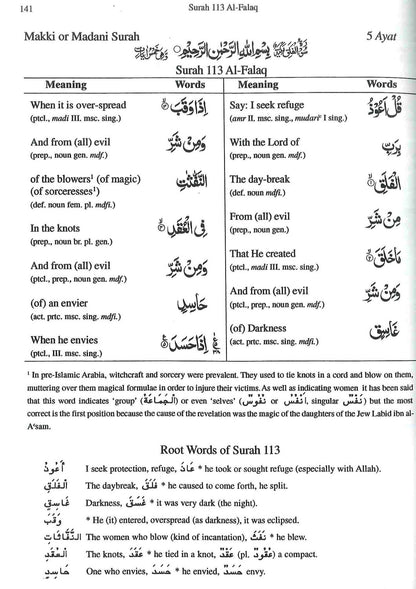 141 Surah 113 Al-Falaq
Makki or Madani Surah بِسْمِ اللّٰهِ الرَّحْمٰنِ الرَّحِيْمِ 5 Ayat
Surah 113 Al-Falaq
Meaning Words
Say: I seek refuge قُلْ اَعُوْذُ
(amr II. msc. sing., mudari' I sing.)
With the Lord of بِرَبِّ
(prep., noun gen. mdf.)
The day-break الْفَلَقِ ۝١
(def. noun mdfi.)
From (all) evil مِنْ شَرِّ
(prep., noun gen.)
That He created مَا خَلَقَ ۝٢
(ptcl., madi III. msc. sing.)
And from (all) evil وَمِنْ شَرِّ
(ptcl., prep., noun gen. mdf.)
(of) Darkness غَاسِقٍ
(act. prtc. msc. sing. mdfi.)
Meaning Words
When it is over-spread اِذَا وَقَبَ ۝٣
(ptcl., madi III. msc. sing.)
And from (all) evil وَمِنْ شَرِّ
(prep., noun gen. mdf.)
of the blowers¹ (of magic) النَّفّٰثٰتِ
(of sorceresses¹)
(def. noun fem. pl. mdfi.)
In the knots فِي الْعُقَدِ ۝٤
(prep., noun br. pl. gen.)
And from (all) evil وَمِنْ شَرِّ
(ptcl., prep., noun gen. mdf.)
(of) an envier حَاسِدٍ
(act. prtc. msc. sing. mdfi.)
When he envies اِذَا حَسَدَ ۝٥
(ptcl., III. msc. sing.)
¹ In pre-Islamic Arabia, witchcraft and sorcery were prevalent. They used to tie knots in a cord and blow on them,
muttering over them magical formulae in order to injure their victims. As well as indicating women it has been said
that this word indicates 'group' (اَلْجَمَاعَةُ) or even 'selves' (نُفُوْسٌ or اَنْفُسٌ, singular نَفْسٌ) but the most
correct is the first position because the cause of the revelation was the magic of the daughters of the Jew Labid ibn al-
A'sam.
Root Words of Surah 113
أَعُوذُ I seek protection, refuge, عَاذَ * he took or sought refuge (especially with Allah).
اَلْفَلَقِ The daybreak, فَلَقَ * he caused to come forth, he split.
غَاسِقٍ Darkness, غَسَقَ * it was very dark (the night).
وَقَبَ * He (it) entered, overspread (as darkness), it was eclipsed.
النَّفَّاثَاتِ The women who blow (kind of incantation), نَفَثَ * he blew.
اَلْعُقَدِ The knots, عَقَدَ * he tied in a knot, عَقْدٌ (pl. عُقُودٌ) a compact.
حَاسِدٍ One who envies, حَسَدَ * he envied, حَسَدٌ envy.